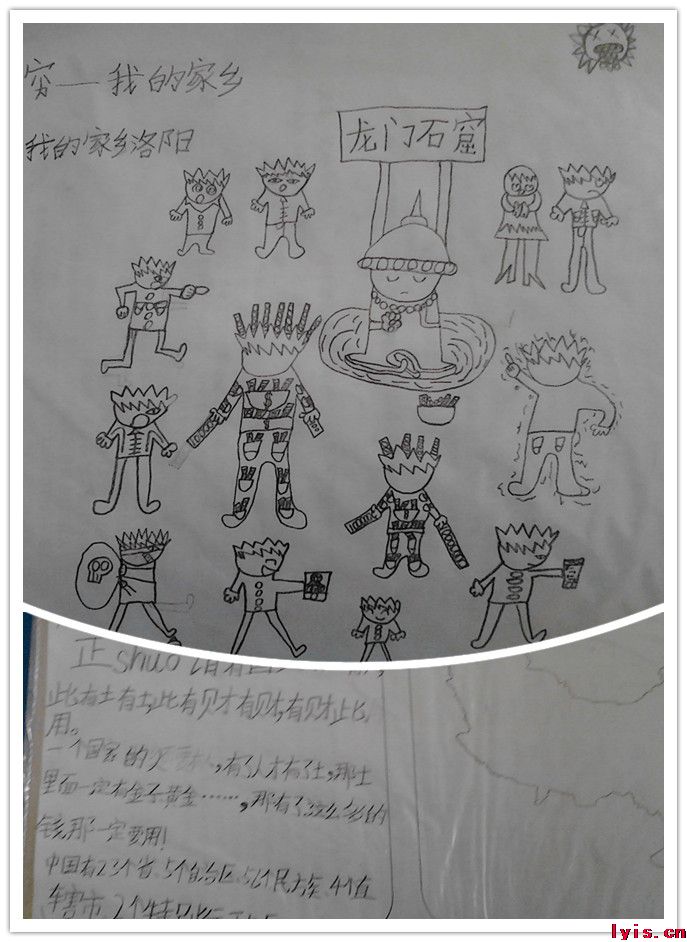 穷——我的家乡
我的家乡洛阳
龙门石窟
$
正shuo
此有土有土,此有财有财,有财此
用。
一个国家的 ,有人才有土,那土
里面一定有金子黄金……,那有了这么多的
钱那一定要用!
中国有23个省、5个自治区、56个民族、4个直
辖市、2个特别行
lyis.cn